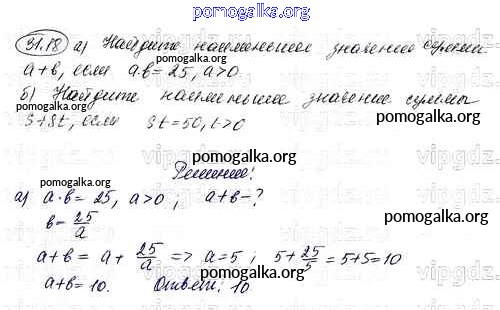 pomogalka.org
31.18 а) Найдите наименьшее значение суммы
а+в, если а·в=25, а>0
pomogalka.org
б) Найдите наименьшее значение суммы
s+8t, если st=50, t>0
pomogalka.org
Решение:
pomogalka.org
а) а·в=25, а>0; а+в-?
в=25/а
pomogalka.org
а+в=а+25/а => а=5; 5+25/5=5+5=10
pomogalka.org
а+в=10. Ответ: 10
pomogalka.org